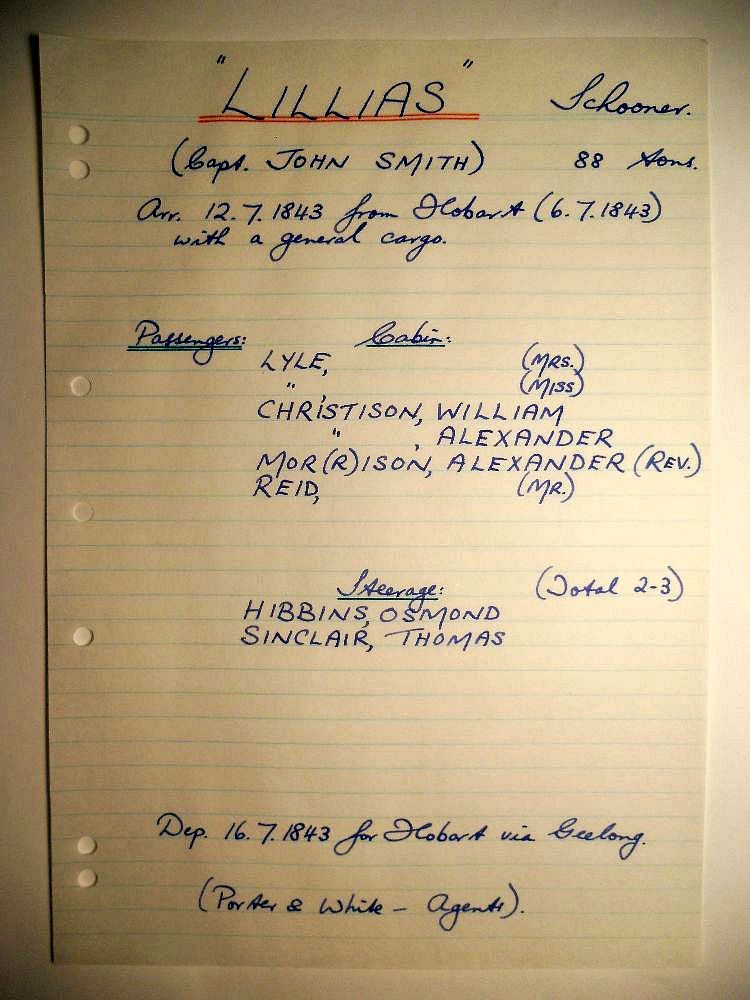 "LILLIAS" Schooner.
(Capt. JOHN SMITH) 88 tons.
Arr. 12.7.1843 from Hobart (6.7.1843)
with a general cargo.
Passengers: Cabin:
LYLE, (MRS.)
" , (MISS)
CHRISTISON, WILLIAM
" , ALEXANDER
MOR(R)ISON, ALEXANDER (REV.)
REID, (MR.)
Steerage: (Total 2-3)
HIBBINS, OSMOND
SINCLAIR, THOMAS
Dep. 16.7.1843 for Hobart via Geelong.
(Porter & White - Agents).